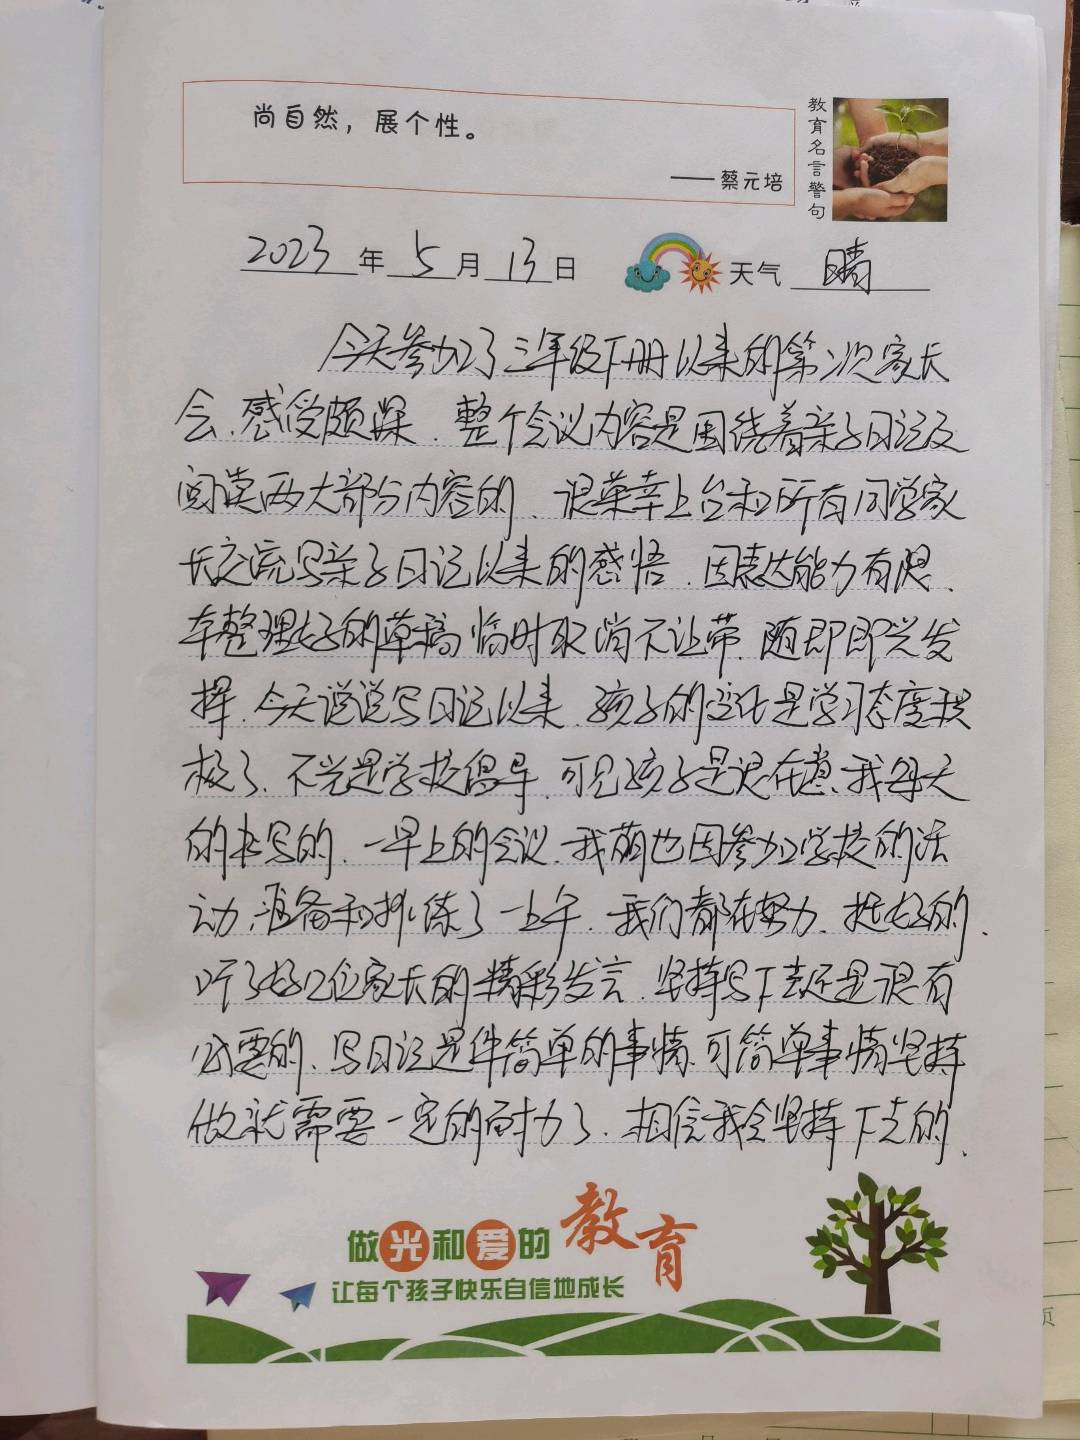 尚自然，展个性。
——蔡元培
教育名言警句
2023年5月13日 天气 晴
今天参加了三年级下册以来的第一次家长
会、感受颇深、整个会议内容是围绕着亲子日记及
阅读两大部分内容的、很荣幸上台和所有同学家
长交流写亲子日记以来的感悟、因表达能力有限、
本整理好的草稿临时取消不让带、随即即兴发
挥、今天说说写日记以来、孩子的变化是学习态度积
极了、不光是学校倡导、可见孩子是很在意我每天
的书写的、一早上的会议、我萌也因参加学校的活
动、准备和排练了一上午、我们都在努力、挺好的、
听了好几位家长的精彩发言、坚持写下去还是很有
必要的、写日记是件简单的事情、可简单事情坚持
做就需要一定的耐力了、相信我会坚持下去的、
做光和爱的教育
让每个孩子快乐自信地成长
页